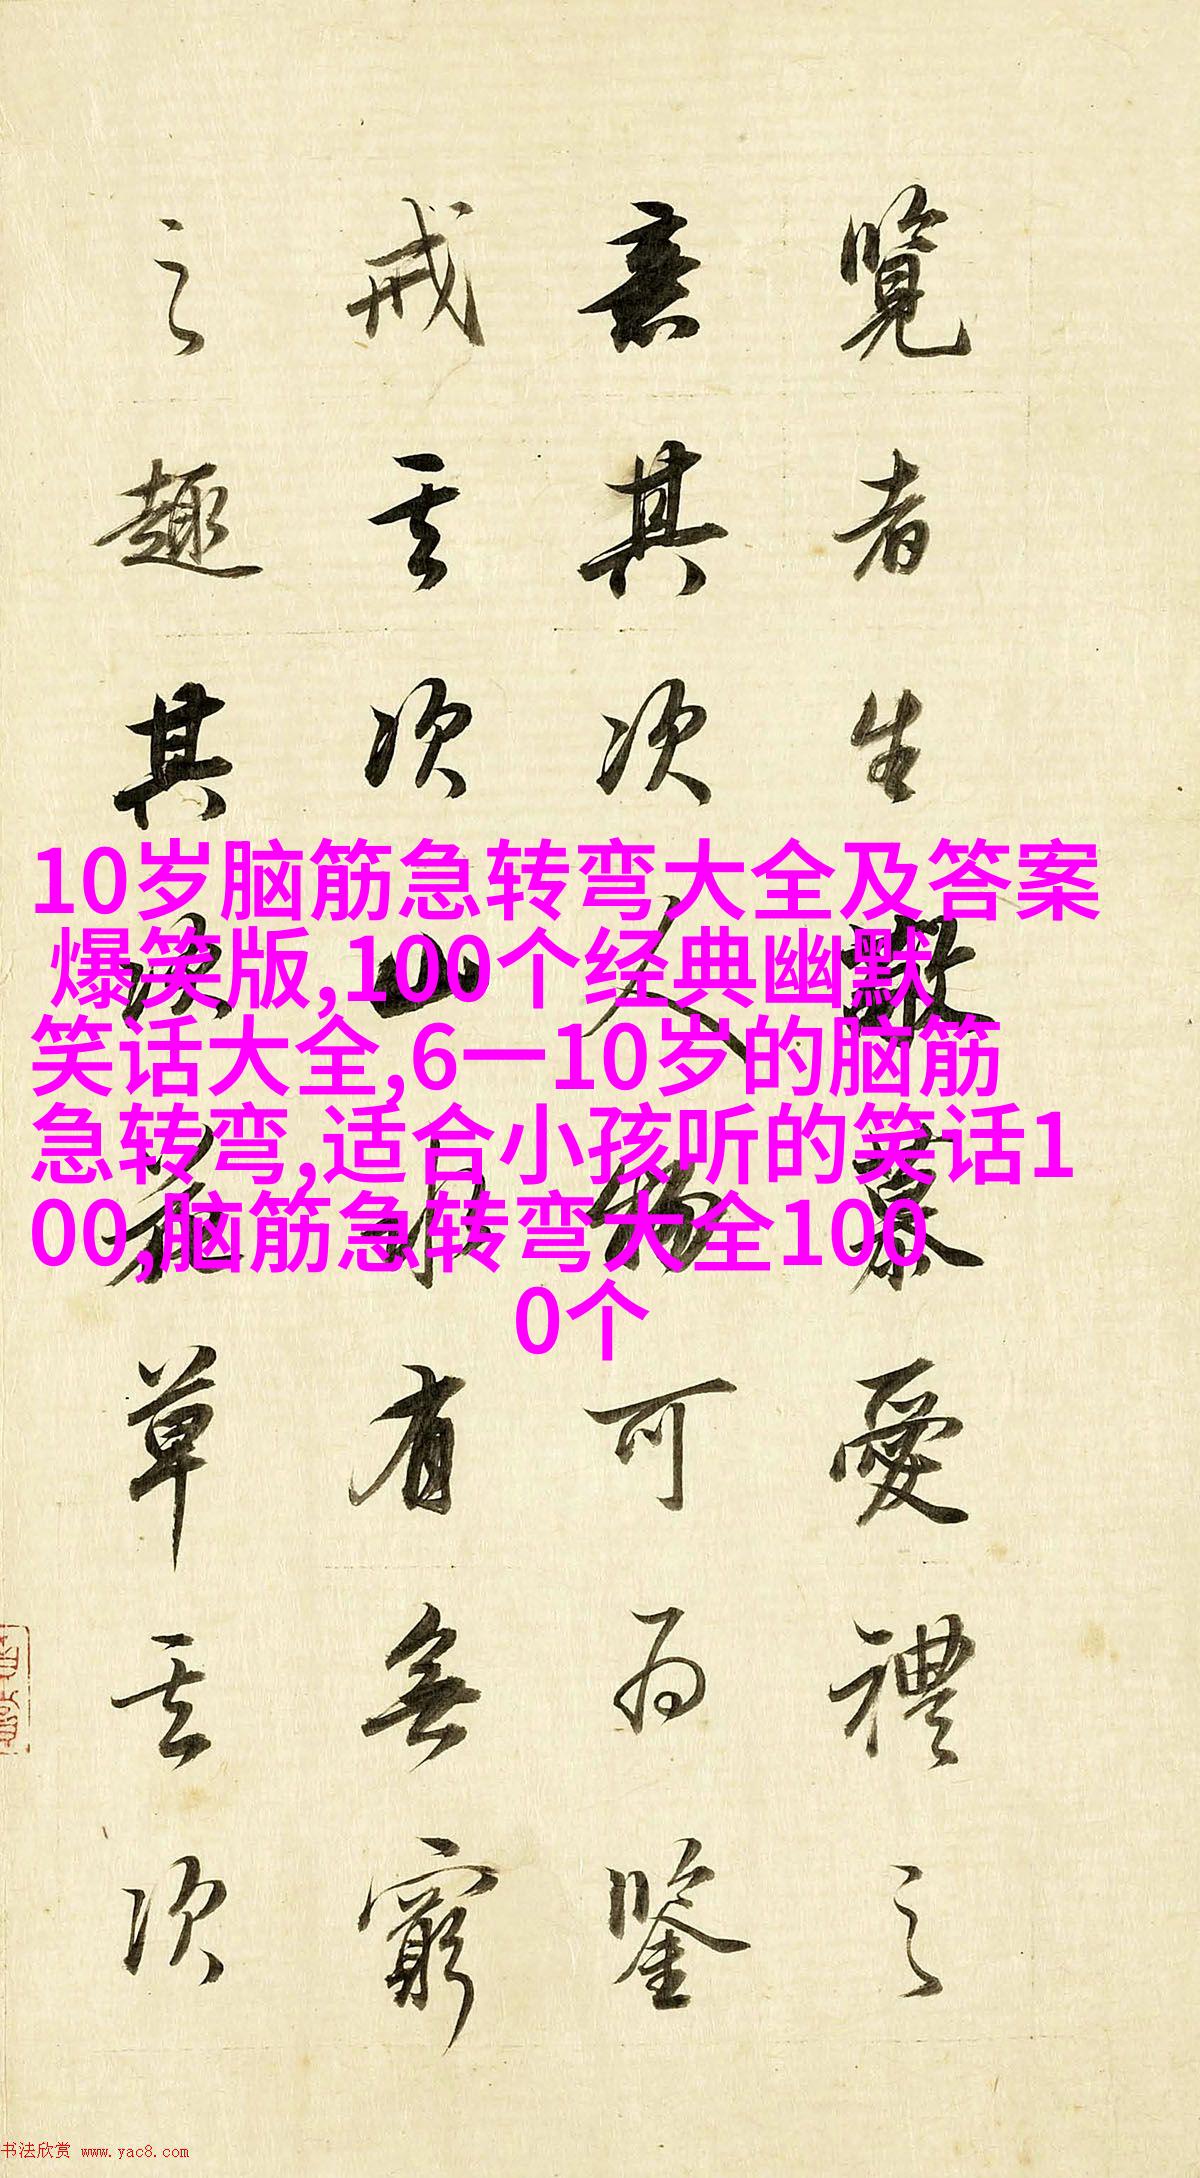 覽者生敬慕愛禮之
意其次人物可為鑒
戒其次山水有無窮
之趣其次花草其次
10岁脑筋急转弯大全及答案
爆笑版,100个经典幽默
笑话大全,6一10岁的脑筋
急转弯,适合小孩听的笑话1
00,脑筋急转弯大全100
0个
书法欣赏 www.yac8.com